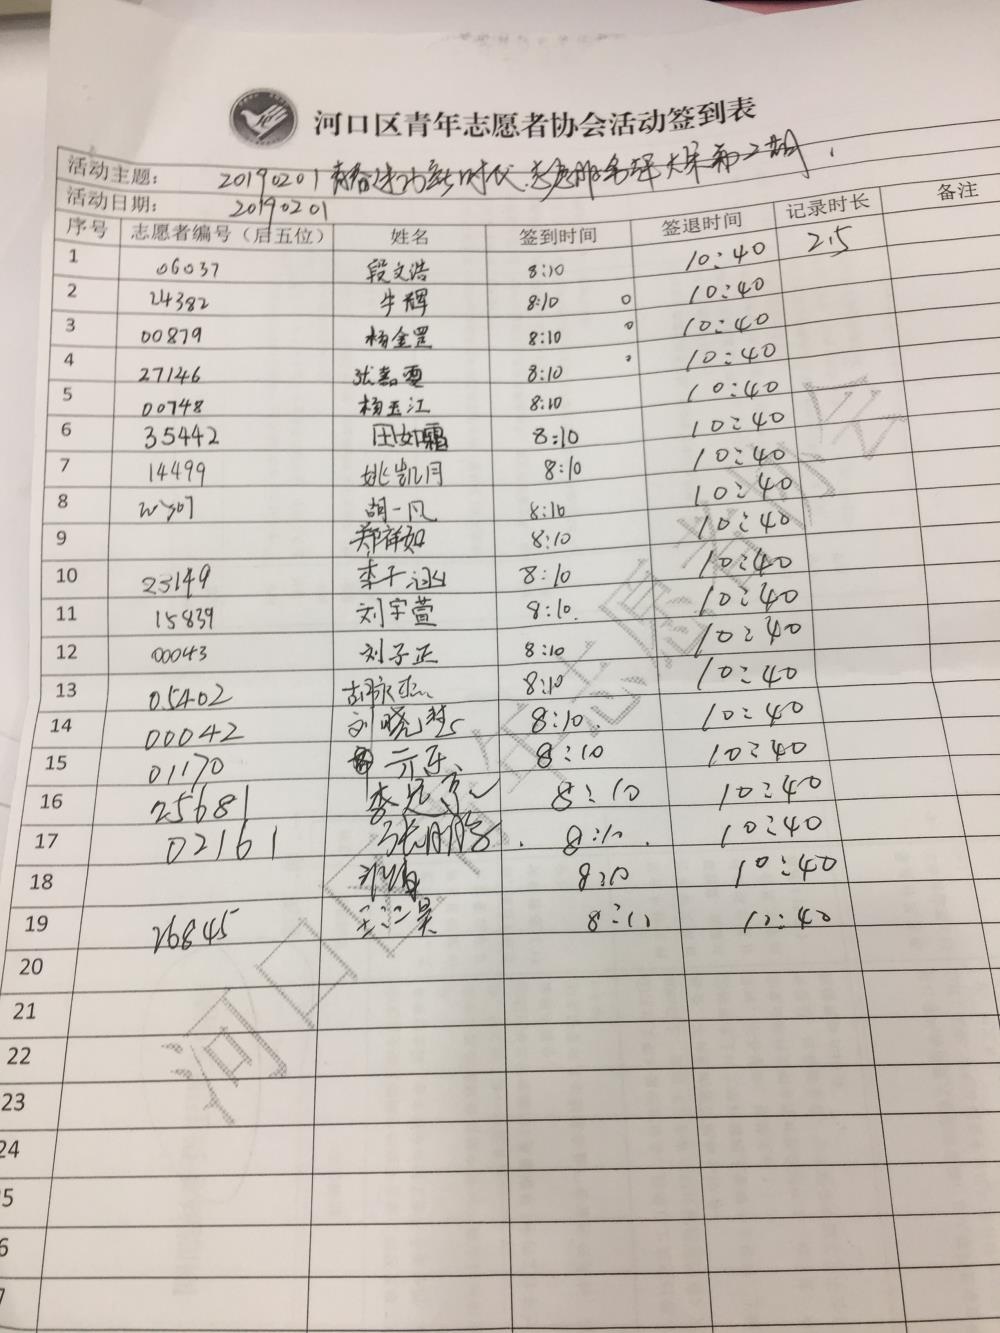 河口区青年志愿者协会活动签到表
活动主题: 20190201 青春建功新时代 志愿服务 第二期
活动日期: 20190201
序号 志愿者编号（后五位） 姓名 签到时间 签退时间 记录时长 备注
1 06037 段文浩 8:10 10:40 2.5
2 24382 牛辉 8:10 10:40
3 00879 杨金罡 8:10 10:40
4 27146 张嘉雯 8:10 10:40
5 00748 杨玉江 8:10 10:40
6 35442 田如霜 8:10 10:40
7 14499 姚凯月 8:10 10:40
8 胡一凡 8:10 10:40
9 郑祥如 8:10 10:40
10 23149 李子涵 8:10 10:40
11 15839 刘宇萱 8:10 10:40
12 00043 刘子正 8:10 10:40
13 05402 8:10 10:40
14 00042 刘晓慧 8:10 10:40
15 01170 8:10 10:40
16 25681 8:10 10:40
17 02161 张鹏 8:10 10:40
18 8:10 10:40
19 26845 王江昊 8:10 10:40
20
21
22
23
24
5
6
7
河口区青年志愿者协会